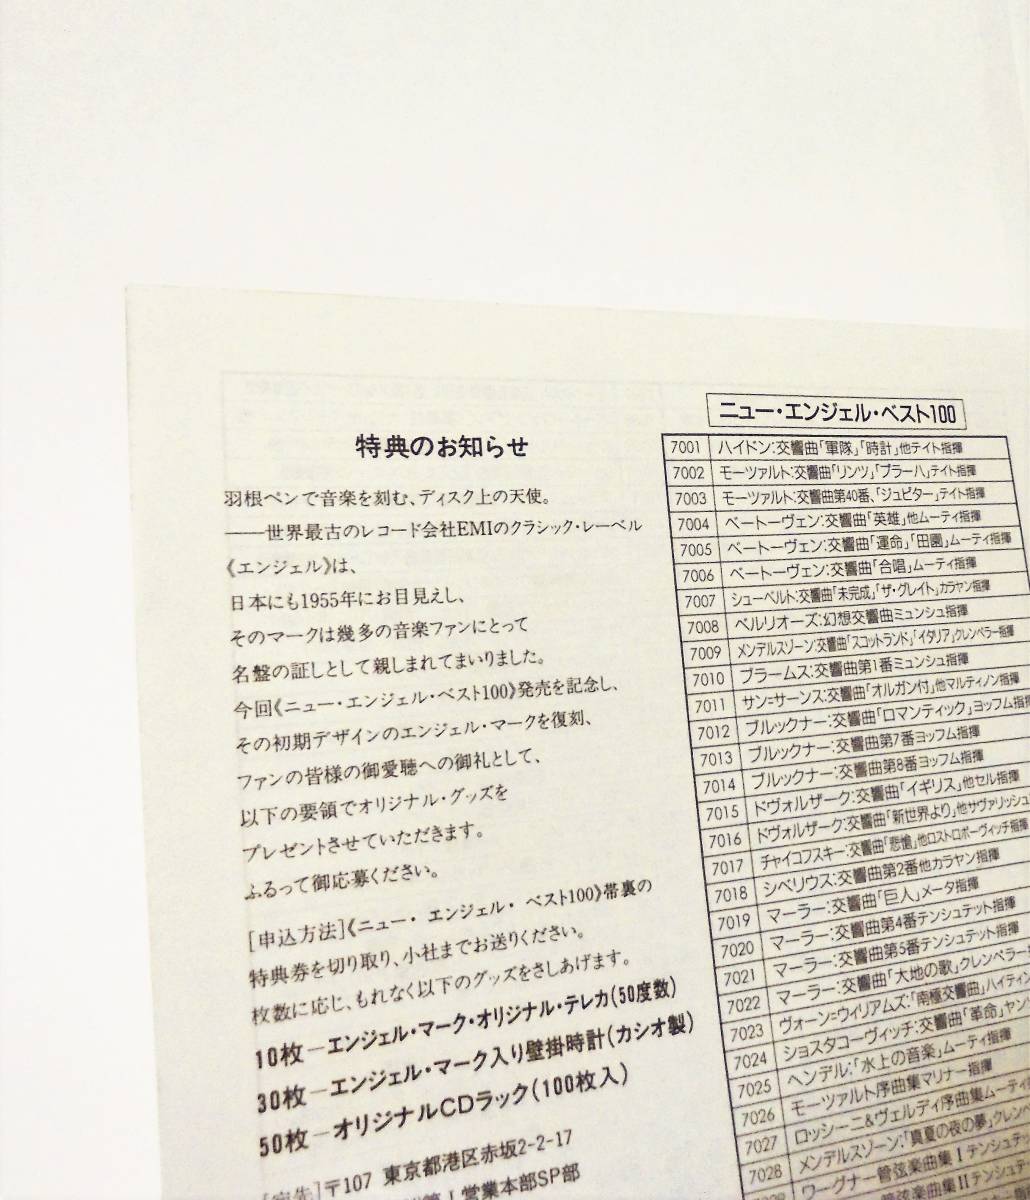 特典のお知らせ
羽根ペンで音楽を刻む、ディスク上の天使。
――世界最古のレコード会社EMIのクラシック・レーベル
《エンジェル》は、
日本にも1955年にお目見えし、
そのマークは幾多の音楽ファンにとって
名盤の証しとして親しまれてまいりました。
今回《ニュー・エンジェル・ベスト100》発売を記念し、
その初期デザインのエンジェル・マークを復刻、
ファンの皆様の御愛聴への御礼として、
以下の要領でオリジナル・グッズを
プレゼントさせていただきます。
ふるって御応募ください。
[申込方法]《ニュー・エンジェル・ベスト100》帯裏の
特典券を切り取り、小社までお送りください。
枚数に応じ、もれなく以下のグッズをさしあげます。
10枚―エンジェル・マーク・オリジナル・テレカ(50度数)
30枚―エンジェル・マーク入り壁掛時計(カシオ製)
50枚―オリジナルCDラック(100枚入)
[宛先]〒107 東京都港区赤坂2-2-17
第1営業本部SP部
ニュー・エンジェル・ベスト100
7001 ハイドン:交響曲「軍隊」「時計」他テイト指揮
7002 モーツァルト:交響曲「リンツ」「プラーハ」テイト指揮
7003 モーツァルト:交響曲第40番、「ジュピター」テイト指揮
7004 ベートーヴェン:交響曲「英雄」他ムーティ指揮
7005 ベートーヴェン:交響曲「運命」「田園」ムーティ指揮
7006 ベートーヴェン:交響曲「合唱」ムーティ指揮
7007 シューベルト:交響曲「未完成」「ザ・グレイト」カラヤン指揮
7008 ベルリオーズ:幻想交響曲ミュンシュ指揮
7009 メンデルスゾーン:交響曲「スコットランド」「イタリア」クレンペラー指揮
7010 ブラームス:交響曲第1番ミュンシュ指揮
7011 サン=サーンス:交響曲「オルガン付」他マルティノン指揮
7012 ブルックナー:交響曲「ロマンティック」ヨッフム指揮
7013 ブルックナー:交響曲第7番ヨッフム指揮
7014 ブルックナー:交響曲第8番ヨッフム指揮
7015 ドヴォルザーク:交響曲「イギリス」他セル指揮
7016 ドヴォルザーク:交響曲「新世界より」他サヴァリッシュ
7017 チャイコフスキー:交響曲「悲愴」他ロストロポーヴィッチ指揮
7018 シベリウス:交響曲第2番他カラヤン指揮
7019 マーラー:交響曲「巨人」メータ指揮
7020 マーラー:交響曲第4番テンシュテット指揮
7021 マーラー:交響曲第5番テンシュテット指揮
7022 マーラー:交響曲「大地の歌」クレンペラー
7023 ヴォーン=ウィリアムズ:「南極交響曲」ハイティン
7024 ショスタコーヴィッチ:交響曲「革命」ヤン
7025 ヘンデル:「水上の音楽」ムーティ指揮
7026 モーツァルト序曲集マリナー指揮
7027 ロッシーニ&ヴェルディ序曲集ムーティ
7028 メンデルスゾーン:「真夏の夜の夢」クレン
ワーグナー管弦楽曲集Ⅰテンシュテット
管弦楽曲集Ⅱテンシュテ